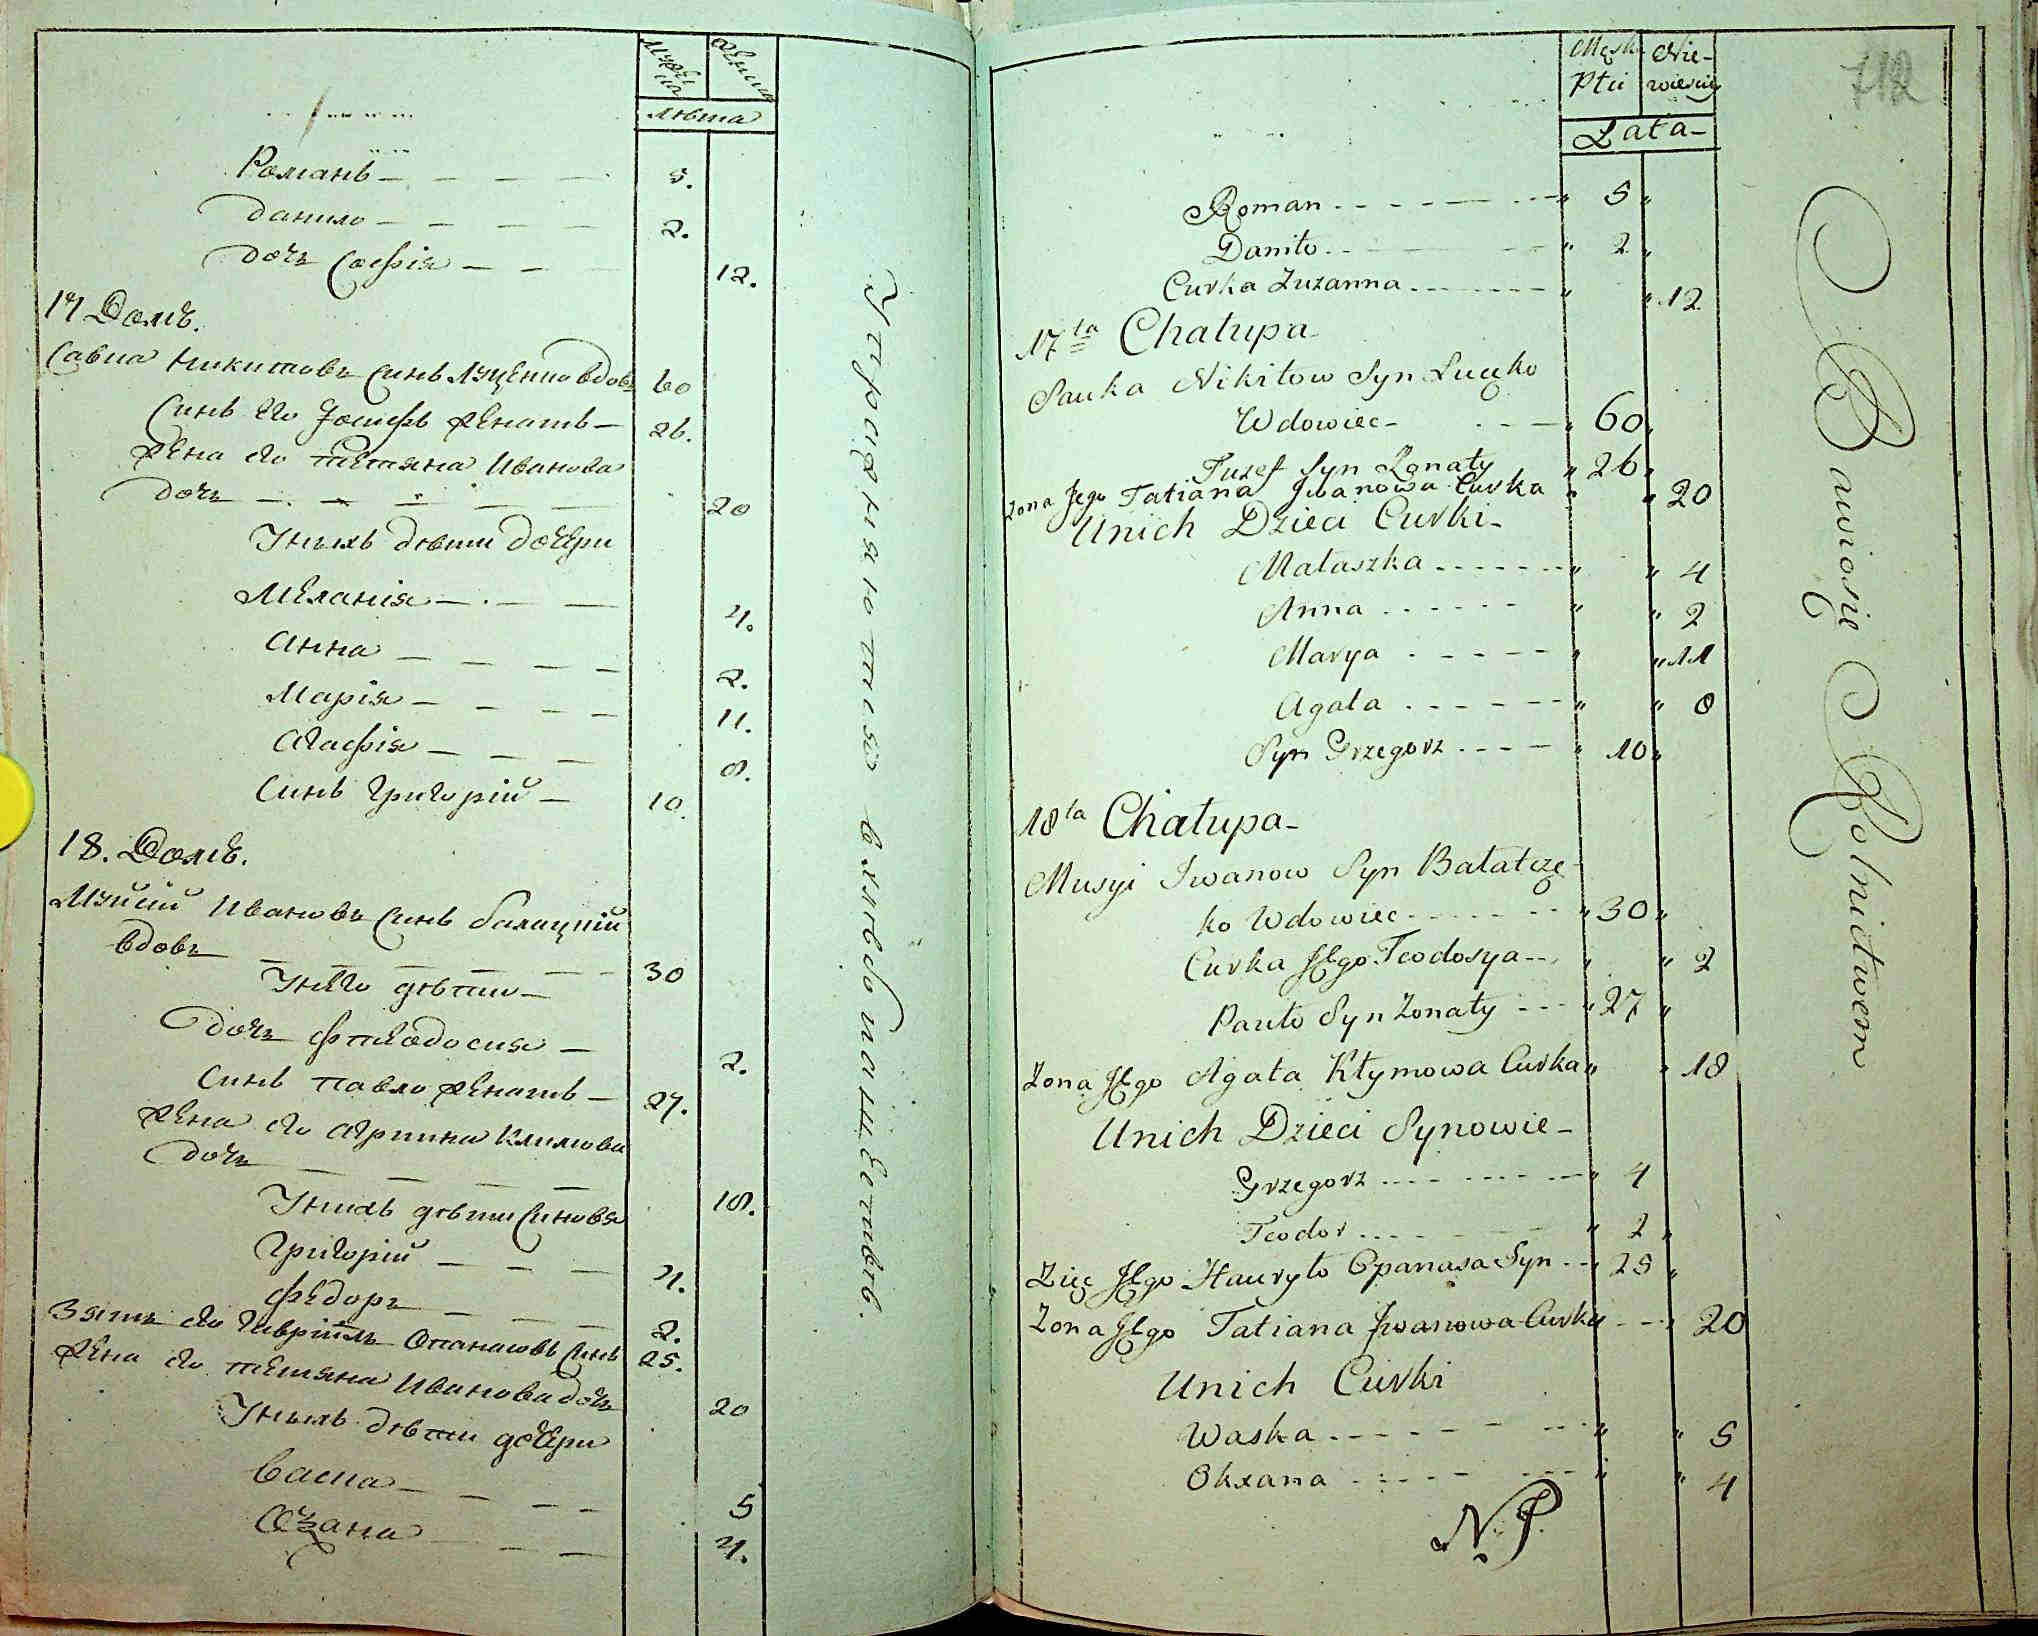 Мужеска
Женска
Лѣта
Романъ — — — — 5.
Данило — — — — 2.
дочь Софія — — — 12.
17 Домъ.
Савка Никитовъ Синъ Луценко вдовъ 60
Синъ его Іосифъ женатъ — 26.
жена его тетяна Иванова
дочь — — — — — 20
Унихъ дѣти дочери
Меланія — — — 4.
Анна — — — — 2.
Марія — — — — 11.
Агафія — — — 8.
Синъ Григорій — 10.
18. Домъ.
Мусій Ивановъ Синъ Балацкій
вдовъ — — — — — 30
Унего дѣти —
дочь Фтеодосия — 2.
Синъ павло женатъ — 27.
жена его Агрипина Климова
дочь — — — — 18.
Унихъ дѣти Синовя
Григорій — — — 4.
Федоръ — — — 2.
Зять его Гавріилъ Опанасовъ Синъ 25.
жена его тетяна Иванова дочь 20
Унихъ дѣти дочери
Васка — — — — 5
Оѯана — — — 4.
Упражняются в хлѣбопашествѣ.
712
Męsk Nie-
Płci wieściey
Lata-
Roman 5
Daniło 2
Curka Zuzanna 12
17ta Chałupa
Sauka Nikitow Syn Łucęko
Wdowiec- 60
Juzef Syn Żonaty 26
Żona Jego Tatiana Jwanowa Curka 20
Unich Dzieci Curki-
Małaszka 4
Anna 2
Marya 11
Agata 8
Syn Grzegorz 10
18ta Chałupa-
Musyi Iwanow Syn Bałatczę-
ko Wdowiec 30
Curka Jego Teodosya 2
Pauło Syn Żonaty 27
Żona Jego Agata Kłymowa Curka 18
Unich Dzieci Synowie-
Grzegorz 4
Teodor 2
Zięć Jego Hauryło Opanasa Syn 25
Żona Jego Tatiana Jwanowa Curka 20
Unich Curki
Waska 5
Oksana 4
N.P.
Bawiosie Rolnictwem